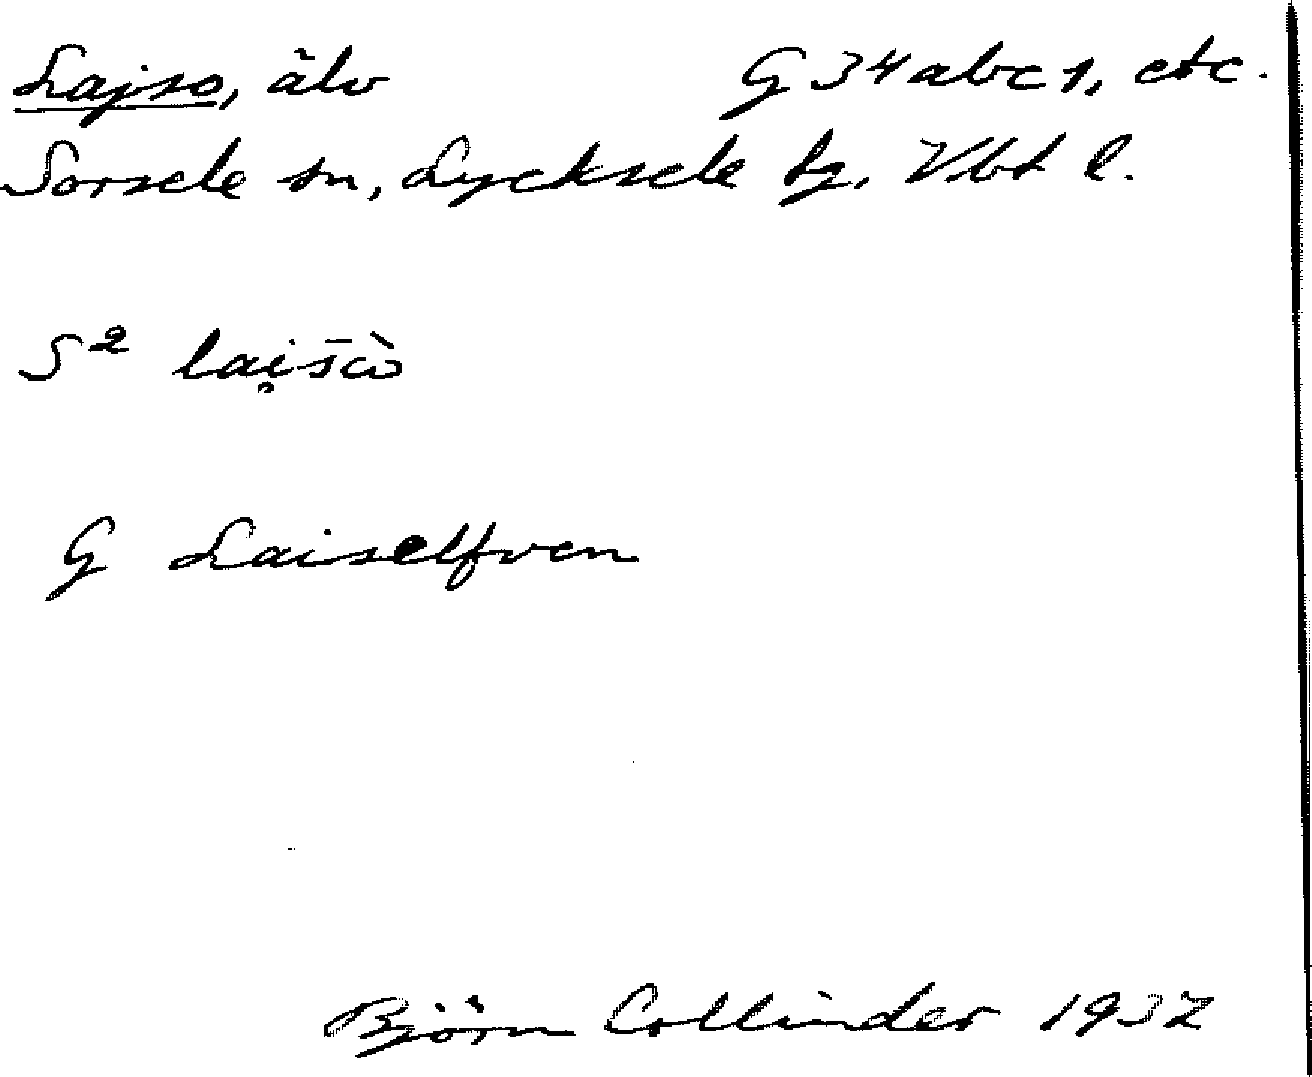 Lajso, älv G 34 abc 1, etc.
Sorsele sn, Lycksele tg, Vbt l.
S²
G Laiselfven
Björn Collinder 1937